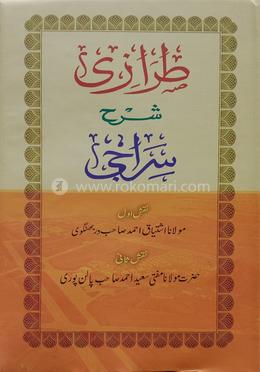 طرازی
شرح
سراجی
www.rokomari.com
نقش اول
مولانا اشتیاق احمد صاحب دربھنگوی
نقش ثانی
حضرت مولانا مفتی سعید احمد صاحب پالن پوری